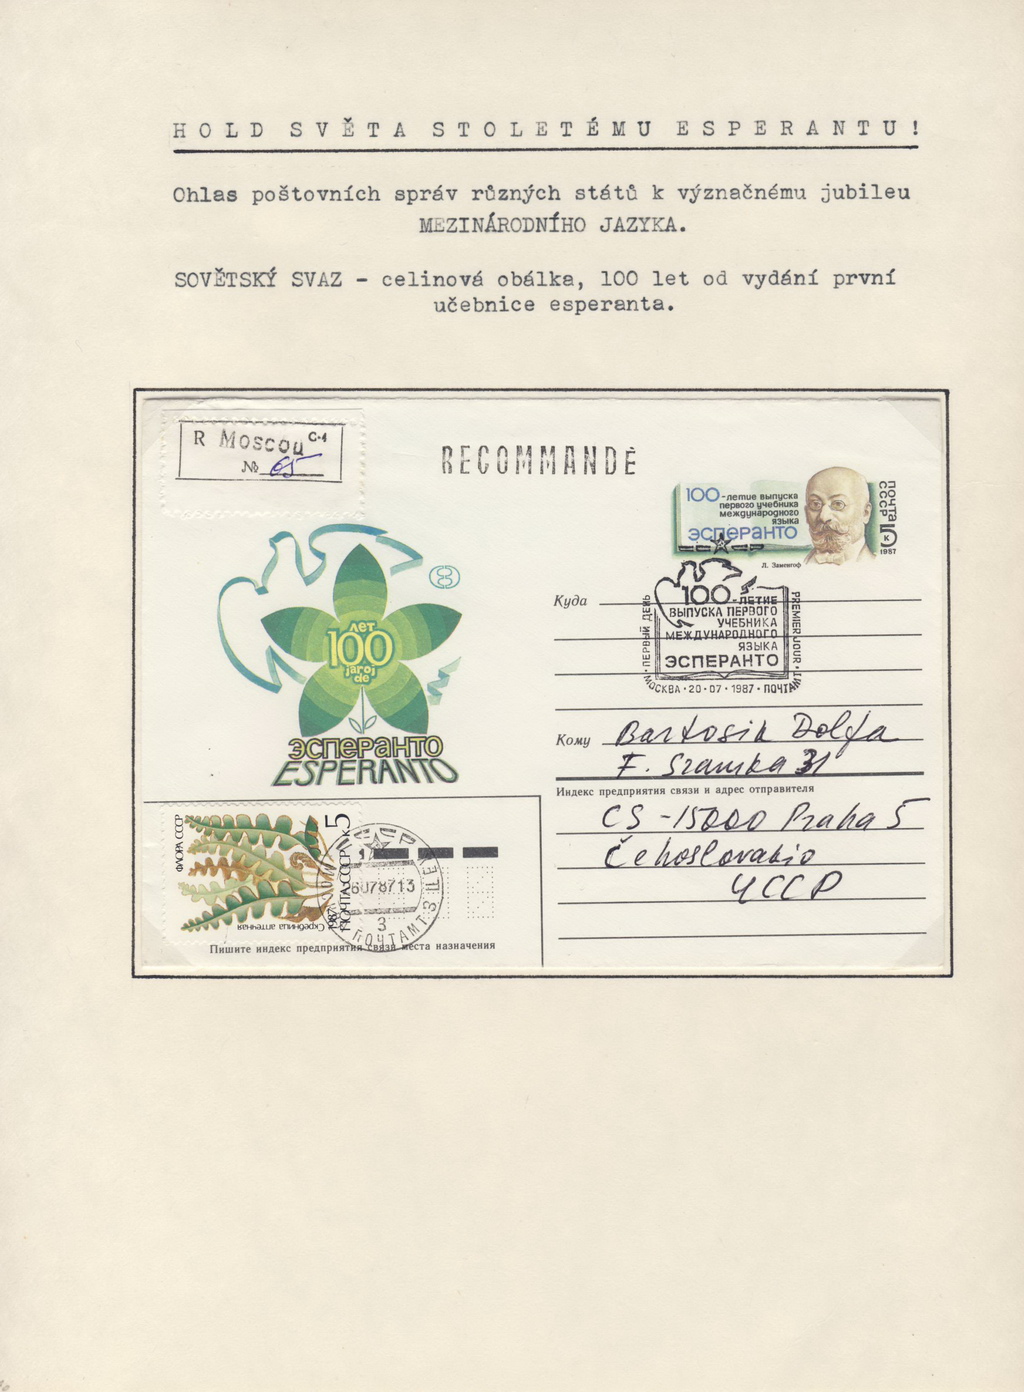 HOLD SVĚTA STOLETÉMU ESPERANTU!
Ohlas poštovních správ různých států k význačnému jubileu
MEZINÁRODNÍHO JAZYKA.
SOVĚTSKÝ SVAZ - celinová obálka, 100 let od vydání první
učebnice esperanta.
R Moscou C-4
№ 65
RECOMMANDÉ
100-летие выпуска
первого учебника
международного
языка
эсперанто
почта
СССР
5 к
1987
Л. Заменгоф
лет
100
jaroj
de
эсперанто
ESPERANTO
Куда
100-ЛЕТИЕ
ВЫПУСКА ПЕРВОГО
УЧЕБНИКА
МЕЖДУНАРОДНОГО
ЯЗЫКА
ЭСПЕРАНТО
ПЕРВЫЙ ДЕНЬ
PREMIER JOUR
МОСКВА · 20·07·1987 · ПОЧТАМТ
Кому Bartosik Dolfa
F. Sramka 31
Индекс предприятия связи и адрес отправителя
CS-15000 Praha 5
Čehoslovakio
ЧССР
ФЛОРА СССР
5к
ПОЧТА СССР
1987
Скребница аптечная
ПОЧТАМТ
3
Пишите индекс предприятия связи места назначения